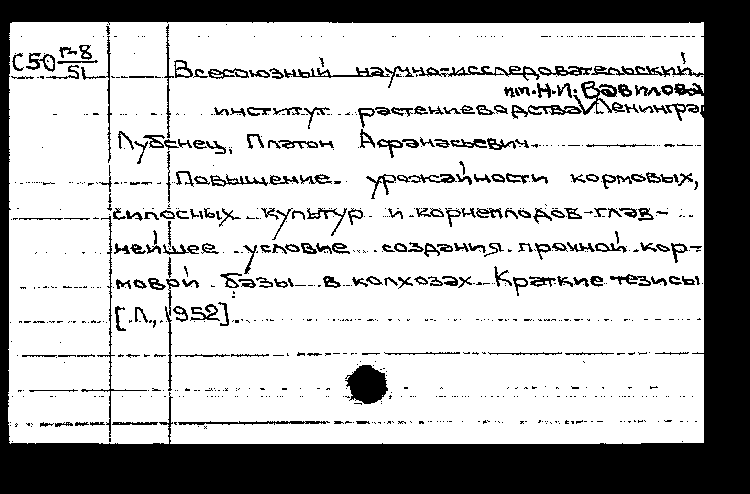 С50 п-8/51
Всесоюзный научно-исследовательский
им. Н.И. Вавилова
институт растениеводства Ленинград
Лубенец, Платон Афанасьевич.
Повышение урожайности кормовых,
силосных культур и корнеплодов-глав-
нейшее условие создания прочной кор-
мовой базы в колхозах. Краткие тезисы
[Л., 1952].